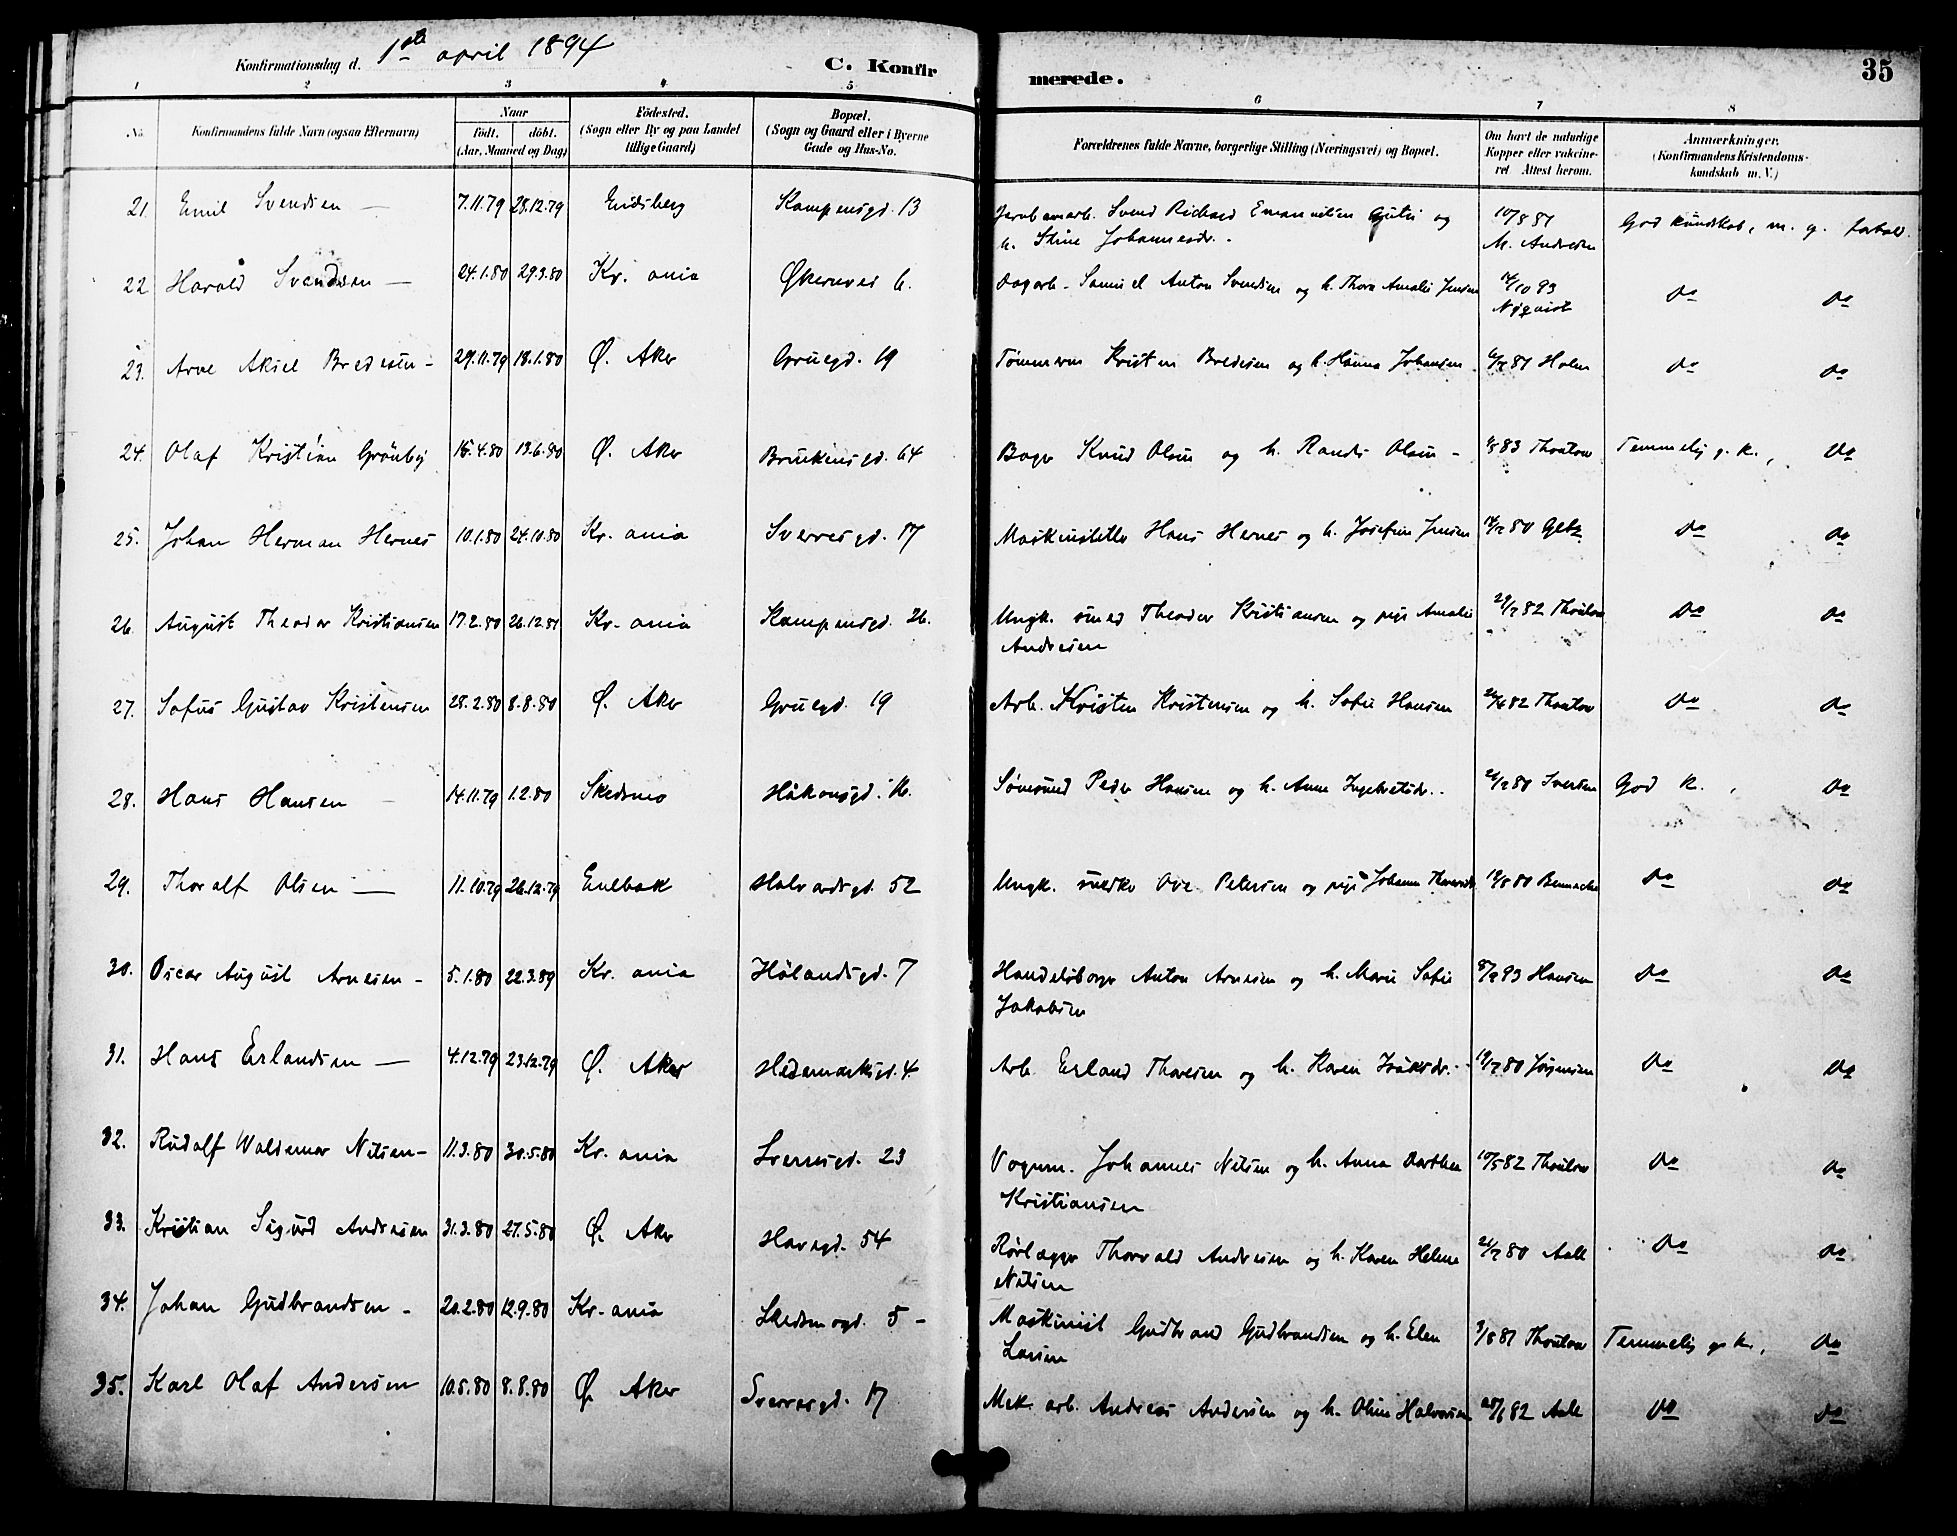 Konfirmationsdag d. 1ste april 1894
C. Konfirmerede.
35
1 2 3 4 5 6 7 8
No. Konfirmandens fulde Navn (ogsaa Efternavn) Naar født. døbt. (Aar, Maaned og Dag) Fødested. (Sogn eller By og paa Landet tillige Gaard) Bopæl. (Sogn og Gaard eller i Byerne Gade og Hus-No. Forældrenes fulde Navne, borgerlige Stilling (Næringsvei) og Bopæl. Om havt de naturlige Kopper eller vakcineret Attest herom. Anmærkninger. (Konfirmandens Kristendomskundskab m. V.)
21. Emil Svendsen — 7.11.79 28.12.79 Eidsberg Kampensgd. 13 Jernbanearb. Svend Richard Emanuelsen og 10/8 81
h. Stine Johannesdr. - M. Andresen God kundskab, m. g. forhold.
22 Harald Svendsen — 24.1.80 29.3.80 Kr. ania Økernvei 6. Dagarb. Samuel Anton Svendsen og h. Thora Amalie Jensen 14/10 83 Nyquist do do
23. Arne Aksel Bredesen - 29.11.79 18.1.80 Ø. Aker Gruegd. 19 Tømmerm Kristen Bredesen og h. Hanna Johansen 6/7 81 Holm do do
24. Olaf Kristian Grønby 15.4.80 13.6.80 Ø. Aker Brinkensgd. 64 Bager Knud Olsen og h. Randi Olsen - 1/8 83 Thoulow Temmelig g. k., do
25. Johan Herman Hernes 10.1.80 24.10.80 Kr. ania Sverresgd. 17 Maskinstello Hans Hernes og h. Josefine Jensen 14/12 80 Getz do do
26. August Theodor Kristiansen 17.2.80 26.12.81 Kr. ania Kampensgd. 26. Ungk. smed Theodor Kristiansen og pige Amalie 29/7 82 Thoulow do do
Andresen
27. Sofus Gustav Kristensen 28.2.80 8.8.80 Ø. Aker Gruegd. 19 Arb. Kristen Kristensen og h. Sofie Hansen 26/4 82 Thoulow do do
28. Hans Hansen - 14.11.79 1.2.80 Skedsmo Håkonsgd. 16. Sømand Peder Hansen og h. Anne Ingebretsdr. - 21/12 80 Iversen God k. , do
29. Thoralf Olsen — 11.10.79 26.12.79 Enebak Halvardsgd. 52 Ungk. snedker Ove Petersen og pige Johanne 19/8 80 do do
30. Oscar August Arnesen - 5.1.80 22.3.89 Kr. ania Hølandsgd. 7 Handelsborger Anton Arnesen og h. Marie Sofie 8/9 83 Hansen do do
Jakobsen
31. Hans Erlandsen — 4.12.79 23.12.79 Ø. Aker Hedemarksgd. 4. Arb. Erland Thoresen og h. Karen Isaksdr. - 19/7 80 Jørgensen do do
32. Rudolf Waldemar Nilsen - 11.3.80 30.5.80 Kr. ania Sverresgd. 23 Vognm. Johannes Nilsen og h. Anna Dorthea 10/5 82 Thoulow do do
Kristiansen
33. Kristian Sigurd Andresen 31.3.80 27.5.80 Ø. Aker Havegd. 54 Rørlægger Thorvald Andresen og h. Karen Helene 21/7 80 Aall do do
Nilsen
34. Johan Gudbrandsen - 20.2.80 12.9.80 Kr. ania Skedsmogd. 5 - Maskinist Gudbrand Gudbrandsen og h. Elen 3/8 81 Thoulow Temmelig g. k., do
Larsen
35. Karl Olaf Andersen 10.5.80 8.8.80 Ø. Aker Sverresgd. 17 Mek. arb. Andreas Andersen og h. Oline Halvorsen 28/6 82 Aall do do